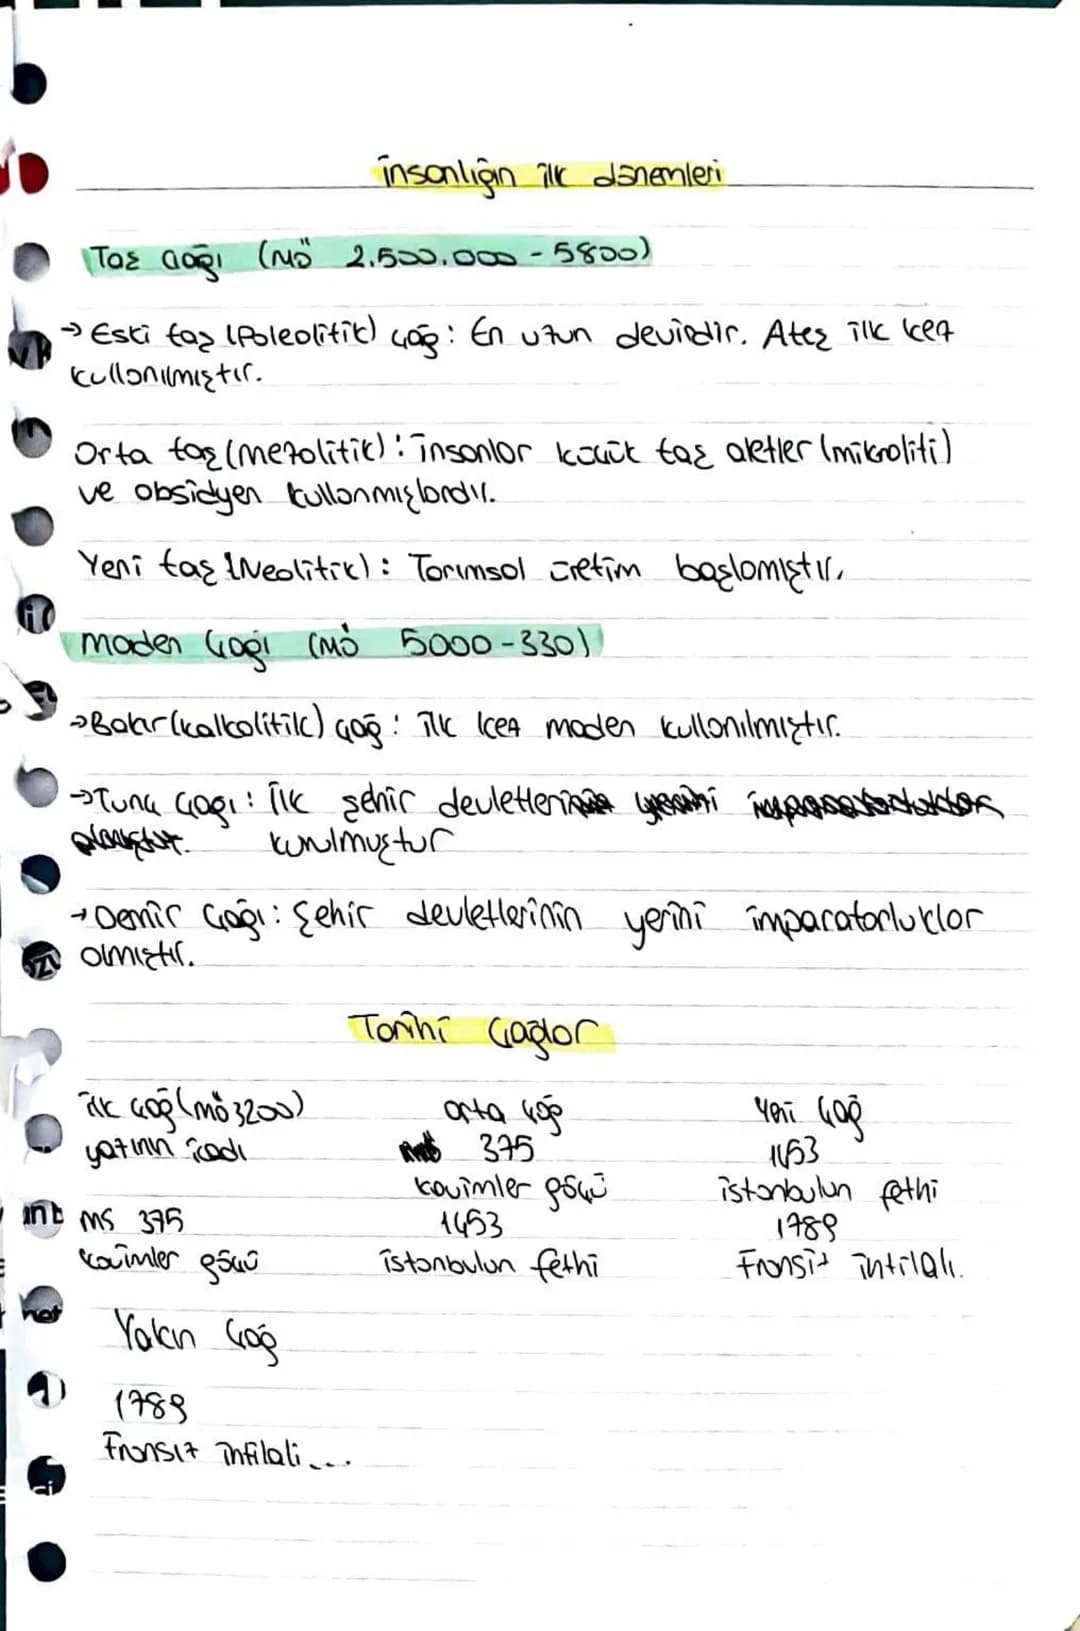 insanlığın ilk dönemleri
Taş Çağı (MÖ 2.500.000 - 5800)
→ Eski taş (Paleolitik) çağ: En uzun devirdir. Ateş ilk kez
kullanılmıştır.
Orta taş (mezolitik): insanlar küçük taş aletler (mikroliti)
ve obsidyen kullanmışlardır.
Yeni taş (Neolitik): Tarımsal üretim başlamıştır.
maden Çağı (MÖ 5000-330)
→ Bakır (kalkolitik) çağ: ilk kez maden kullanılmıştır.
→ Tunç Çağı: ilk şehir devletleri
kurulmuştur
→ Demir Çağı: Şehir devletlerinin yerini imparatorluklar
olmıştır.
Tarihi Çağlar
ilk çağ (mö 3200) orta çağ Yeni Çağ
yazının icadı 375 1453
kavimler göçü istanbulun fethi
MS 375 1453 1789
kavimler göçü istanbulun fethi Fransız intilalı.
Yakın Çağ
1789
Fransız infilali...